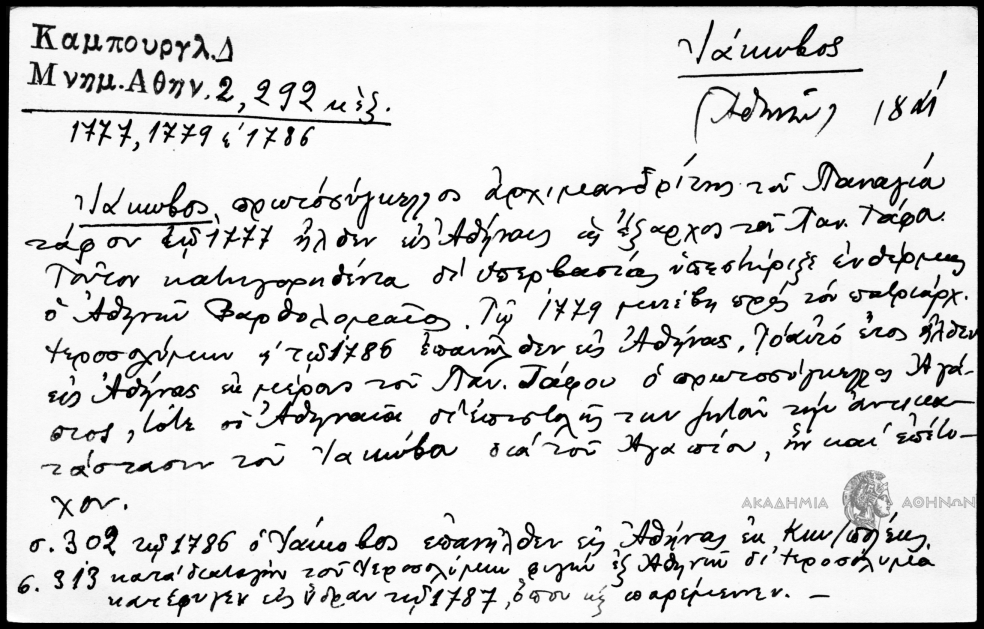 Καμπουργλ.Δ
Μνημ.Αθην.2, 292 κἑξ.
1777, 1779 ἐ 1786
Ἰάκωβος
(Ἀθηνῶν) 18
Ἰάκωβος, πρωτοσύγκελλος ἀρχιμανδρίτης τοῦ Παναγία
τάφου τῷ 1777 ἦλθεν εἰς Ἀθήνας ὡς ἔξαρχος τοῦ Παν. Τάφου.
Τοῦτον κατηγορηθέντα δι' ὑπερβασίας ὑπεστήριξε ἐνθέρμως
ὁ Ἀθηνῶν Βαρθολομαῖος. Τῷ 1779 μετέβη πρός τόν πατριάρχ.
Ἱεροσολύμων ἐ τῷ 1786 ἐπανῆλθεν εἰς Ἀθήνας, Τό αὐτό ἔτος ἦλθεν
εἰς Ἀθήνας ἐκ μέρους τοῦ Παν. Τάφου ὁ πρωτοσύγκελλος Ἀγά-
πιος, τότε οἱ Ἀθηναῖοι δι' ἐπιστολῆς των ζητοῦν τήν ἀντικα-
τάστασιν τοῦ Ἰακώβου διά τοῦ Ἀγαπίου, ἥν καί ἐπέτυ-
χον.
ΑΚΑΔΗΜΙΑ ΑΘΗΝΩΝ
σ. 302 τῷ 1786 ὁ Ἰάκωβος ἐπανῆλθεν εἰς Ἀθήνας ἐκ Κων/πόλεως.
σ. 313 κατά διαταγήν τοῦ Ἱεροσολύμων φυγών ἐξ Ἀθηνῶν δι' Ἱεροσόλυμα
κατέφυγεν εἰς Ὕδραν τῷ 1787, ὅπου κ παρέμεινεν. –